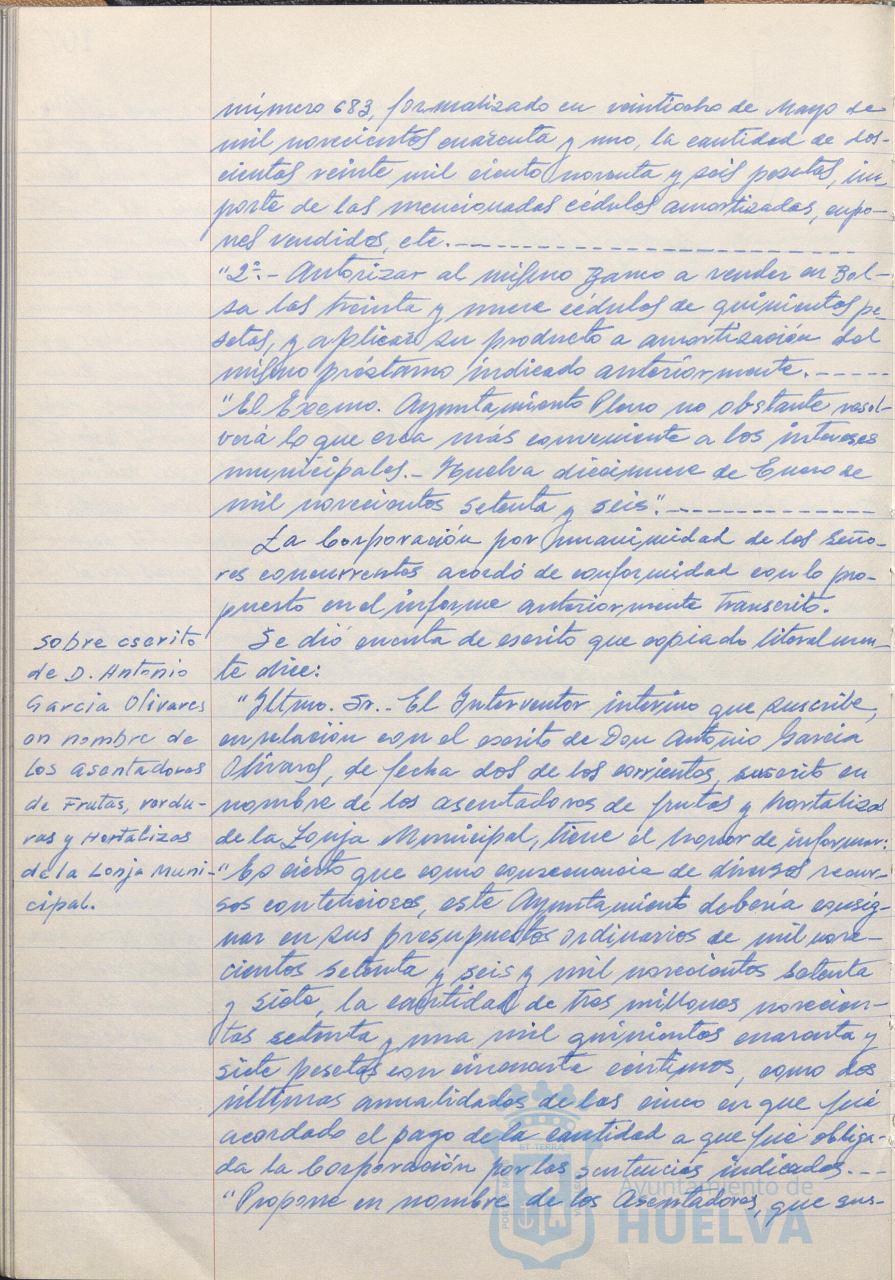 número 683, formalizado en veintiocho de Mayo de
mil novecientos cuarenta y uno, la cantidad de dos-
cientas veinte mil ciento noventa y seis pesetas, im-
porte de las mencionadas cédulas amortizadas, cupo-
nes vendidos, etc.---------------
"2º.- Autorizar al mismo Banco a vender en Bol-
sa las treinta y nueve cédulas de quinientas pe-
setas, y aplicar su producto a amortización del
mismo préstamo indicado anteriormente.-----
"El Excmo. Ayuntamiento Pleno no obstante resol-
verá lo que crea más conveniente a los intereses
municipales.- Huelva diecinueve de Enero de
mil novecientos setenta y seis".-------------
La Corporación por unanimidad de los seño-
res concurrentes acordó de conformidad con lo pro-
puesto en el informe anteriormente transcrito.
Sobre escrito
de D. Antonio
Garcia Olivares
en nombre de
los Asentadores
de Frutas, verdu-
ras y Hortalizas
de la Lonja Muni-
cipal.
Se dió cuenta de escrito que copiado literalmen-
te dice:
"Iltmo. Sr.- El Interventor interino que suscribe,
en relación con el escrito de Don Antonio Garcia
Olivares, de fecha dos de los corrientes, suscrito en
nombre de los asentadores de frutas y hortalizas
de la Lonja Municipal, tiene el honor de informar:
"Es cierto que como consecuencia de diversos recur-
sos contenciosos, este Ayuntamiento debería consig-
nar en sus presupuestos ordinarios de mil nove-
cientos setenta y seis y mil novecientos setenta
y siete, la cantidad de tres millones novecien-
tas setenta y una mil quinientas cuarenta y
siete pesetas con cincuenta céntimos, como dos
últimas anualidades de las cinco en que fué
acordado el pago de la cantidad a que fué obliga-
da la Corporación por las sentencias indicadas.---
"Propone en nombre de los Asentadores, que sus-
Ayuntamiento de
HUELVA